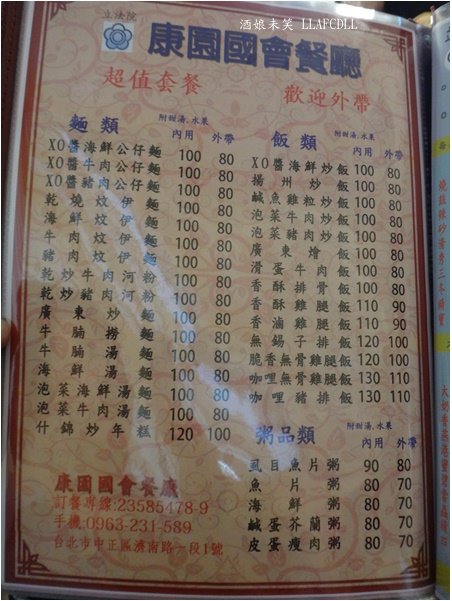 酒娘未笑 LLAFCDLL
立法院
康園國會餐廳
超值套餐 歡迎外帶
麵類 附甜湯.水果
內用 外帶
XO醬海鮮公仔麵 100 80
XO醬牛肉公仔麵 100 80
XO醬豬肉公仔麵 100 80
乾燒炆伊麵 100 80
海鮮炆伊麵 100 80
牛肉炆伊麵 100 80
豬肉炆伊麵 100 80
乾炒牛肉河粉 100 80
乾炒豬肉河粉 100 80
廣東炒麵 100 80
牛腩撈麵 100 80
牛腩湯麵 100 80
海鮮湯麵 100 80
泡菜海鮮湯麵 100 80
泡菜牛肉湯麵 100 80
什錦炒年糕 120 100
康園國會餐廳
訂餐專線:23585478-9
手機:0963-231-589
台北市中正區濟南路一段1號
飯類 附甜湯.水果
內用 外帶
XO醬海鮮炒飯 100 80
揚州炒飯 100 80
鹹魚雞粒炒飯 100 80
泡菜牛肉炒飯 100 80
泡菜豬肉炒飯 100 80
廣東燴飯 100 80
滑蛋牛肉飯 100 80
香酥排骨飯 100 80
香酥雞腿飯 110 90
香滷雞腿飯 110 90
無錫子排飯 120 100
脆香無骨雞腿飯 120 100
咖哩無骨雞腿飯 130 110
咖哩豬排飯 130 110
粥品類 附甜湯.水果
內用 外帶
虱目魚片粥 90 80
魚片粥 80 70
海鮮粥 80 70
鹹蛋芥蘭粥 80 70
皮蛋瘦肉粥 80 70